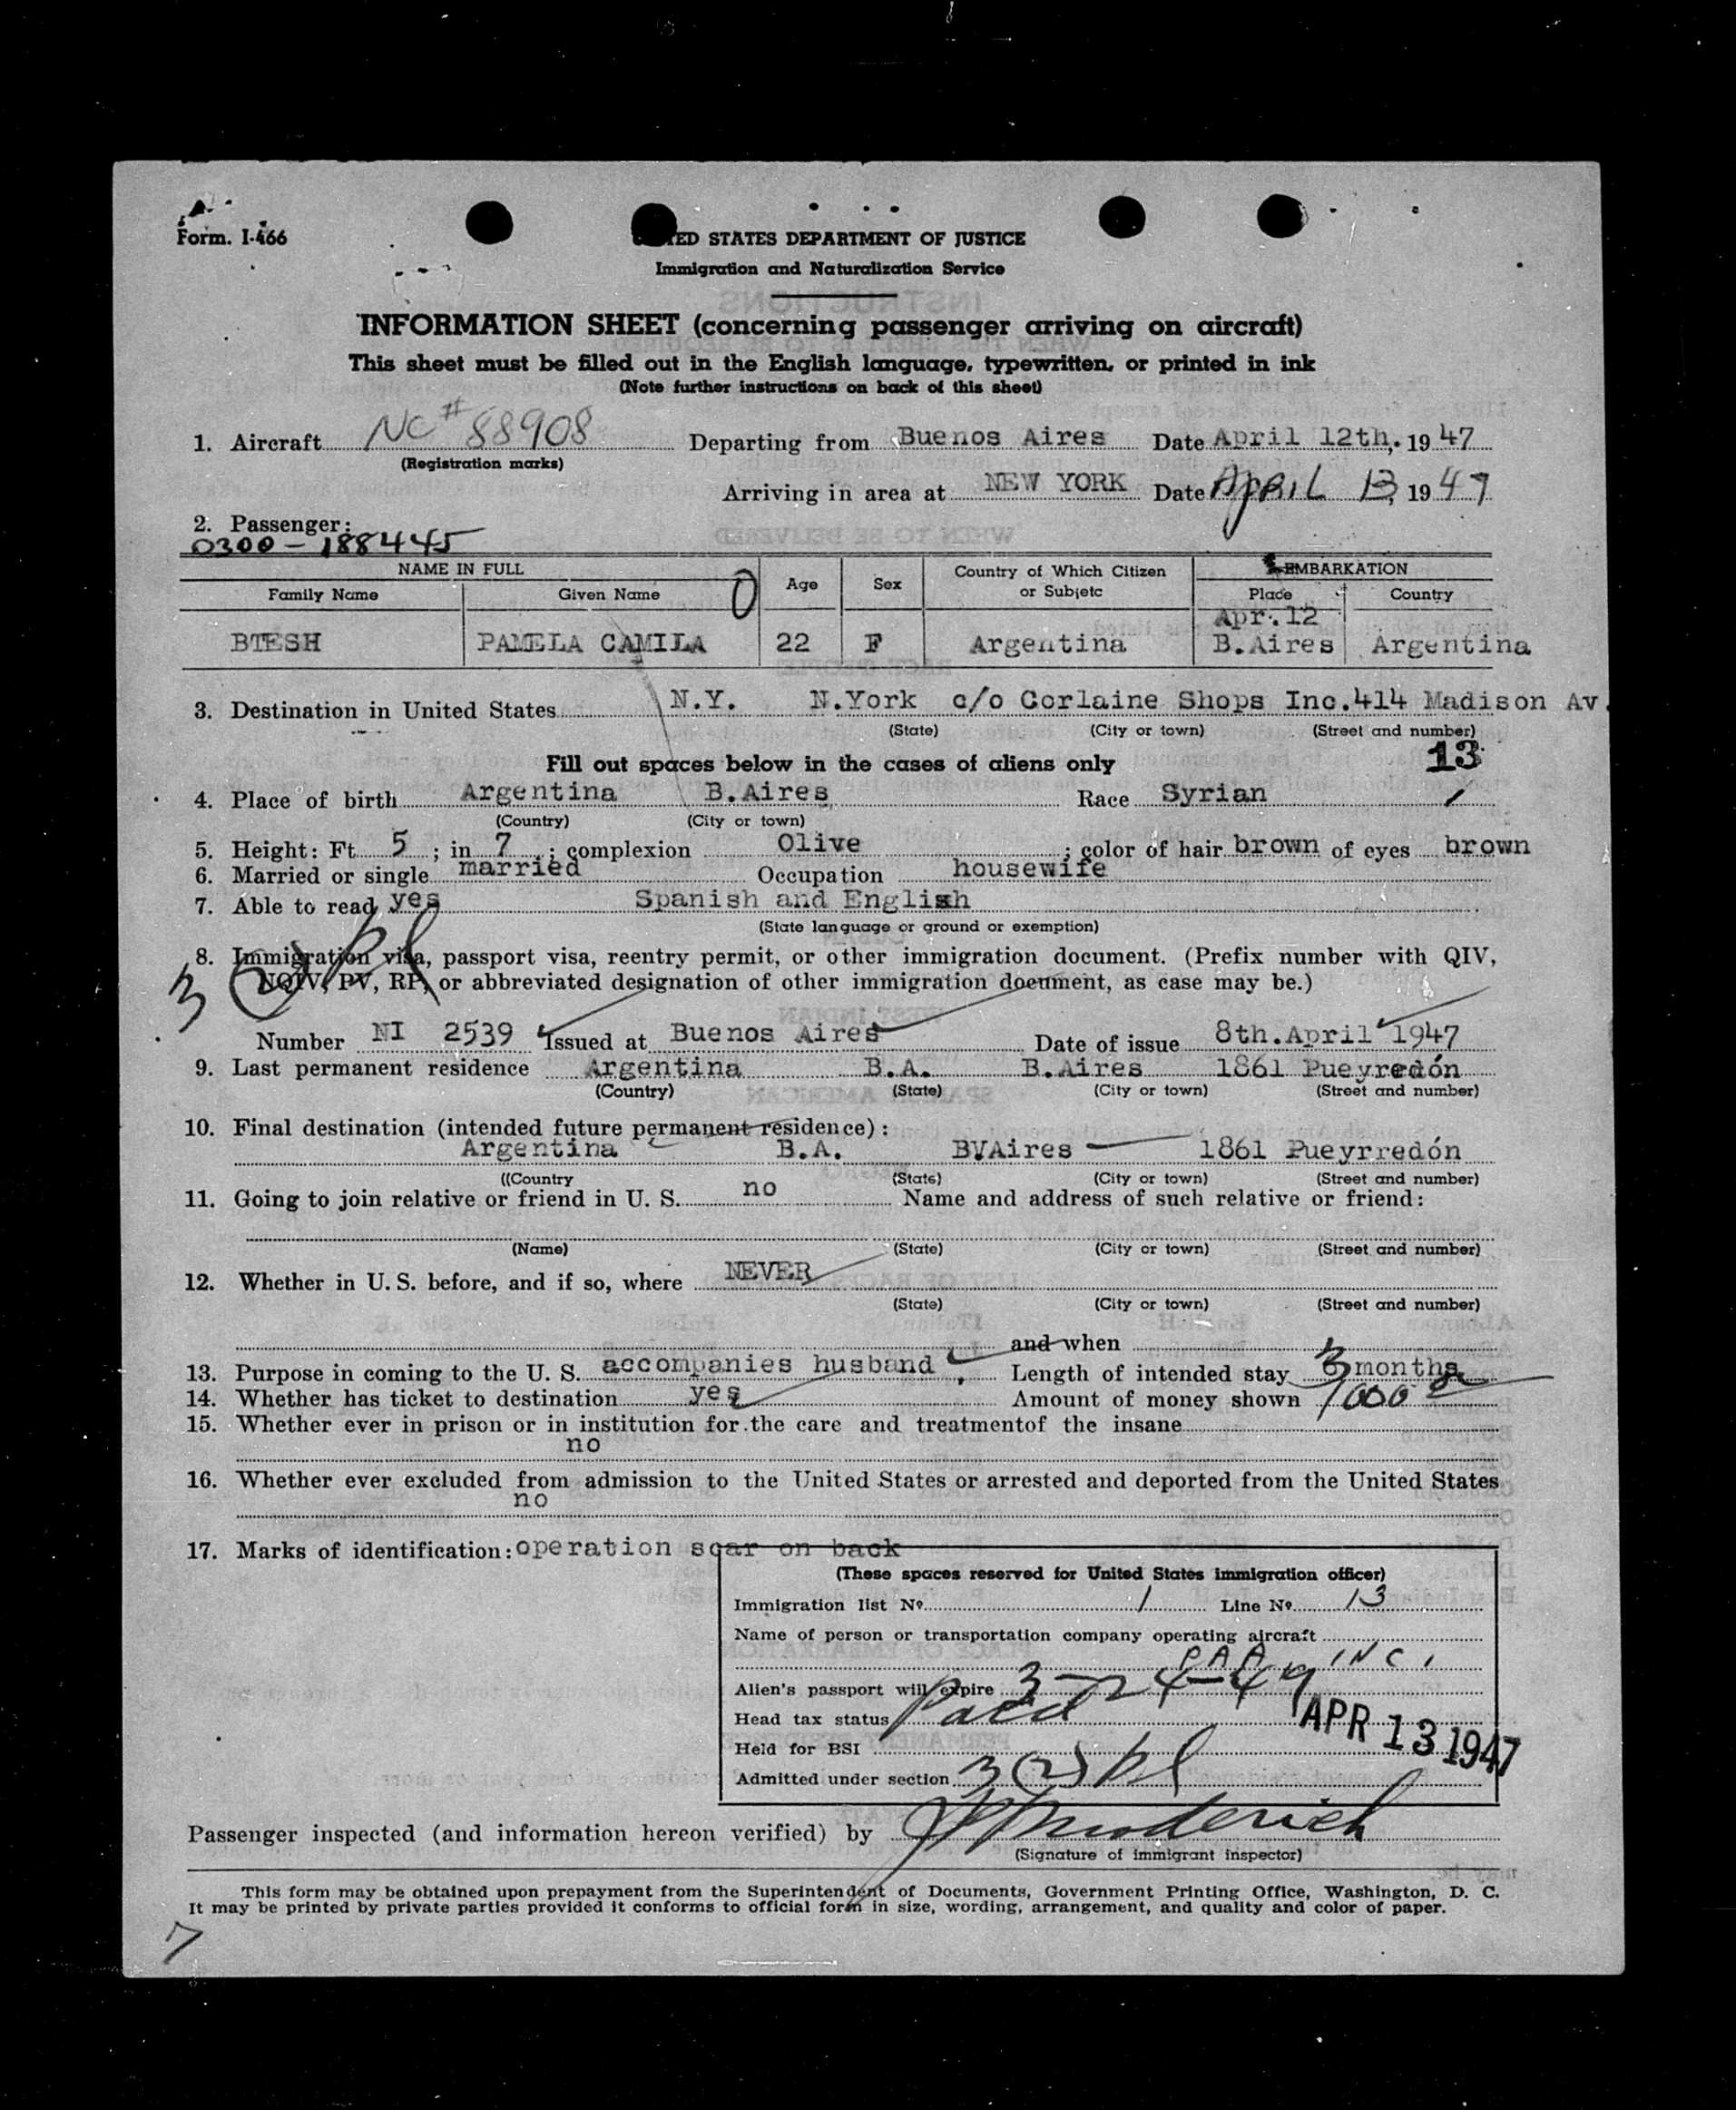 Form. I-466
ED STATES DEPARTMENT OF JUSTICE
Immigration and Naturalization Service
INFORMATION SHEET (concerning passenger arriving on aircraft)
This sheet must be filled out in the English language, typewritten, or printed in ink
(Note further instructions on back of this sheet)
1. Aircraft NC# 88908 Departing from Buenos Aires Date April 12th, 1947
(Registration marks)
Arriving in area at NEW YORK Date APRIL 13, 1947
2. Passenger:
0300-188445
NAME IN FULL 0 Age Sex Country of Which Citizen or Subjetc EMBARKATION
Family Name Given Name Place Country
Apr.12
BTESH PAMELA CAMILA 22 F Argentina B.Aires Argentina
3. Destination in United States N.Y. N.York c/o Corlaine Shops Inc.414 Madison Av.
(State) (City or town) (Street and number)
Fill out spaces below in the cases of aliens only 13
4. Place of birth Argentina B.Aires Race Syrian
(Country) (City or town)
5. Height: Ft. 5 ; in 7 ; complexion Olive ; color of hair brown of eyes brown
6. Married or single married Occupation housewife
7. Able to read yes Spanish and English
(State language or ground or exemption)
8. Immigration visa, passport visa, reentry permit, or other immigration document. (Prefix number with QIV,
NQIV, PV, RP, or abbreviated designation of other immigration document, as case may be.)
3(2) pl
Number NI 2539 Issued at Buenos Aires Date of issue 8th.April 1947
9. Last permanent residence Argentina B.A. B.Aires 1861 Pueyredón
(Country) (State) (City or town) (Street and number)
10. Final destination (intended future permanent residence) :
Argentina B.A. BVAires 1861 Pueyrredón
((Country (State) (City or town) (Street and number)
11. Going to join relative or friend in U. S. no Name and address of such relative or friend:
(Name) (State) (City or town) (Street and number)
12. Whether in U. S. before, and if so, where NEVER
(State) (City or town) (Street and number)
and when
13. Purpose in coming to the U. S. accompanies husband. Length of intended stay 3 months
14. Whether has ticket to destination yes Amount of money shown 1000
15. Whether ever in prison or in institution for the care and treatmentof the insane
no
16. Whether ever excluded from admission to the United States or arrested and deported from the United States
no
17. Marks of identification: operation scar on back
(These spaces reserved for United States immigration officer)
Immigration list Nº 1 Line Nº 13
Name of person or transportation company operating aircraft
P A A, INC,
Alien's passport will expire 3-24-49
Head tax status Paid
APR 13 1947
Held for BSI
Admitted under section 3(2) pl
Passenger inspected (and information hereon verified) by
(Signature of immigrant inspector)
This form may be obtained upon prepayment from the Superintendent of Documents, Government Printing Office, Washington, D. C.
It may be printed by private parties provided it conforms to official form in size, wording, arrangement, and quality and color of paper.
7